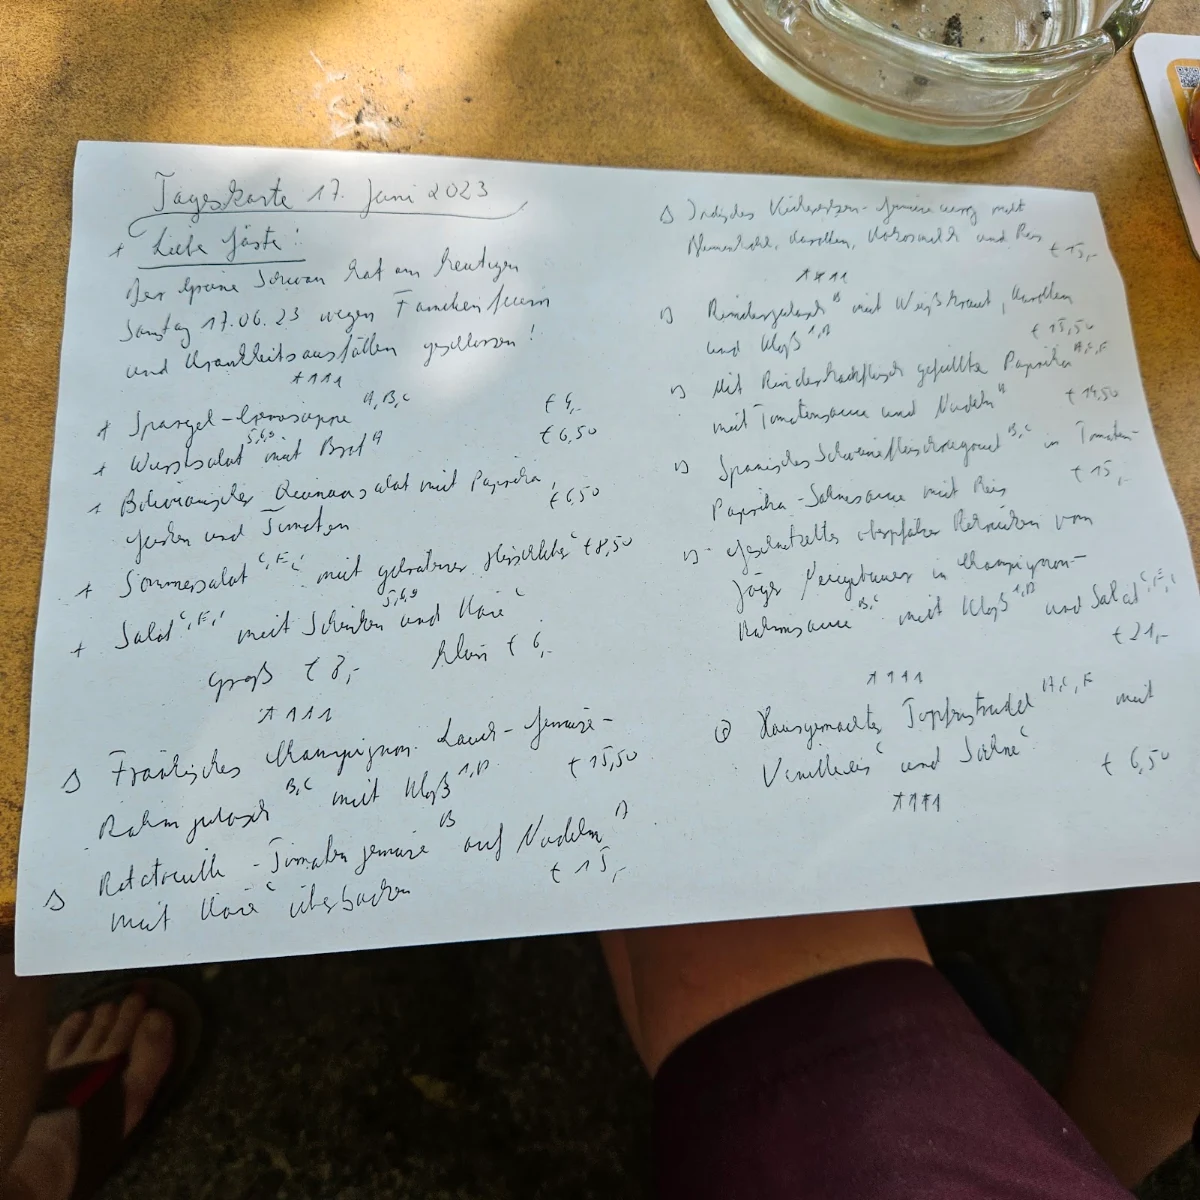 Tageskarte 17. Juni 2023
* Liebe Gäste!
Der Grüne Schwan hat am heutigen
Samstag 17.06.23 wegen Familienfeiern
und Krankheitsausfällen geschlossen!
****
* Spargel-Cremesuppe A,B,C € 4,-
* Wurstsalat 5,6,9 mit Brot A € 6,50
* Bolivianischer Quinoasalat mit Paprika,
Gurken und Tomaten € 6,50
* Sommersalat C,F,I mit gebratener C € 8,50
* Salat C,F,I mit Schinken 5,6,9 und Käse C
groß € 8,- klein € 6,-
****
Fränkisches Champignon-Lauch-Gemüse-
Rahmgulasch B,C mit Kloß 1,B € 15,50
Ratatouille-Tomatengemüse B auf Nudeln A
mit Käse C überbacken € 15,-
Indisches Kichererbsen-Gemüsecurry mit
Blumenkohl, Karotten, Kokosmilch und Reis € 15,-
****
Rindergulasch B mit Weißkraut, Karotten
und Kloß 1,B € 15,50
Mit Rinderhackfleisch gefüllte Paprika A,C,F
mit Tomatensauce und Nudeln A € 14,50
Spanisches Schweinefleischragout B,C in Tomaten-
Paprika-Sahnesauce mit Reis € 15,-
Geschnetzeltes oberpfälzer vom
Jäger in Champignon-
Rahmsauce B,C mit Kloß 1,B und Salat C,F,I
€ 21,-
****
Hausgemachter Topfenstrudel A,C,F mit
Vanilleeis C und Sahne C € 6,50
****